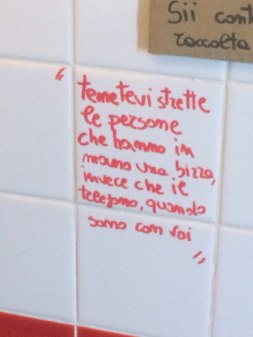 Sii cont
raccolta
"
tenetevi strette
le persone
che hanno in
mano una birra,
invece che il
telefono, quando
sono con voi
"